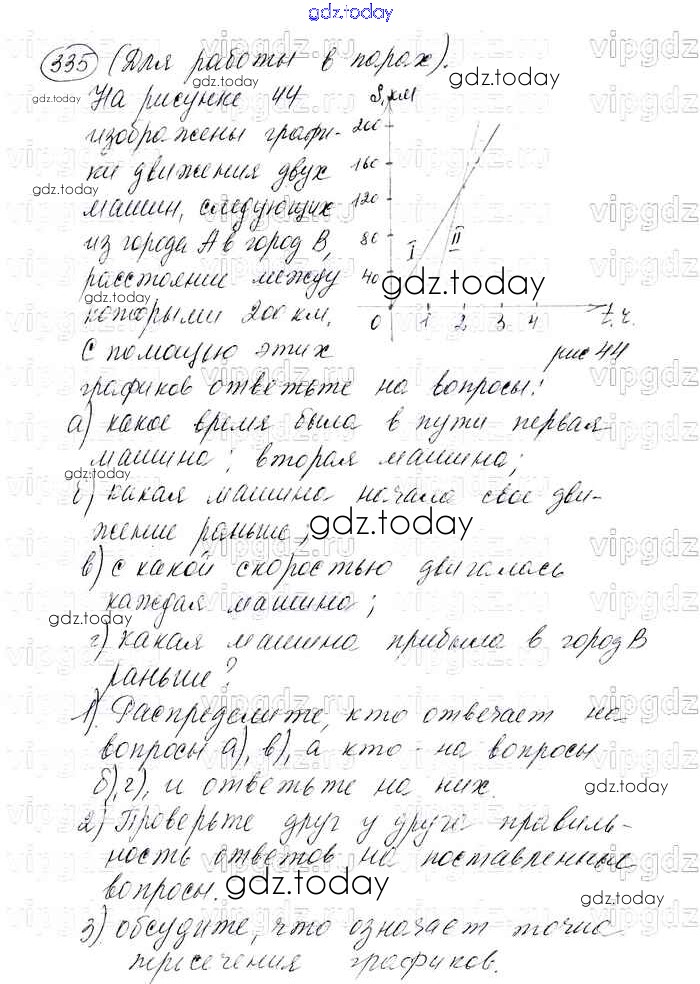 gdz.today
335 (Для работы в парах).
На рисунке 44
изображены графи-
ки движения двух
машин, следующих
из города А в город В,
расстояние между
которыми 200 км.
С помощью этих
S, км
200
160
120
80
40
0 1 2 3 4 t, ч.
I II
рис 44
графиков ответьте на вопросы:
а) какое время была в пути первая
машина; вторая машина;
б) какая машина начала свое дви-
жение раньше;
в) с какой скоростью двигалась
каждая машина;
г) какая машина прибыла в город В
раньше?
1) Распределите, кто отвечает на
вопросы а), в), а кто - на вопросы
б), г), и ответьте на них.
2) Проверьте друг у друга правиль-
ность ответов на поставленные
вопросы.
3) обсудите, что означает точка
пересечения графиков.
gdz.today
vipgdz.ru